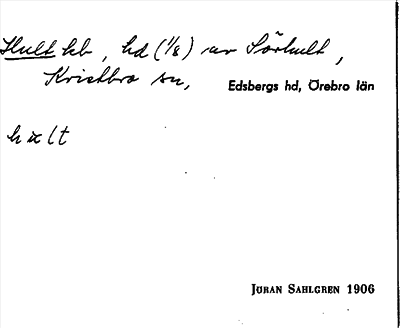 Hult hb, hd (1/8) av Sörhult,
Kvistbro sn, Edsbergs hd, Örebro län
hult
JÖRAN SAHLGREN 1906